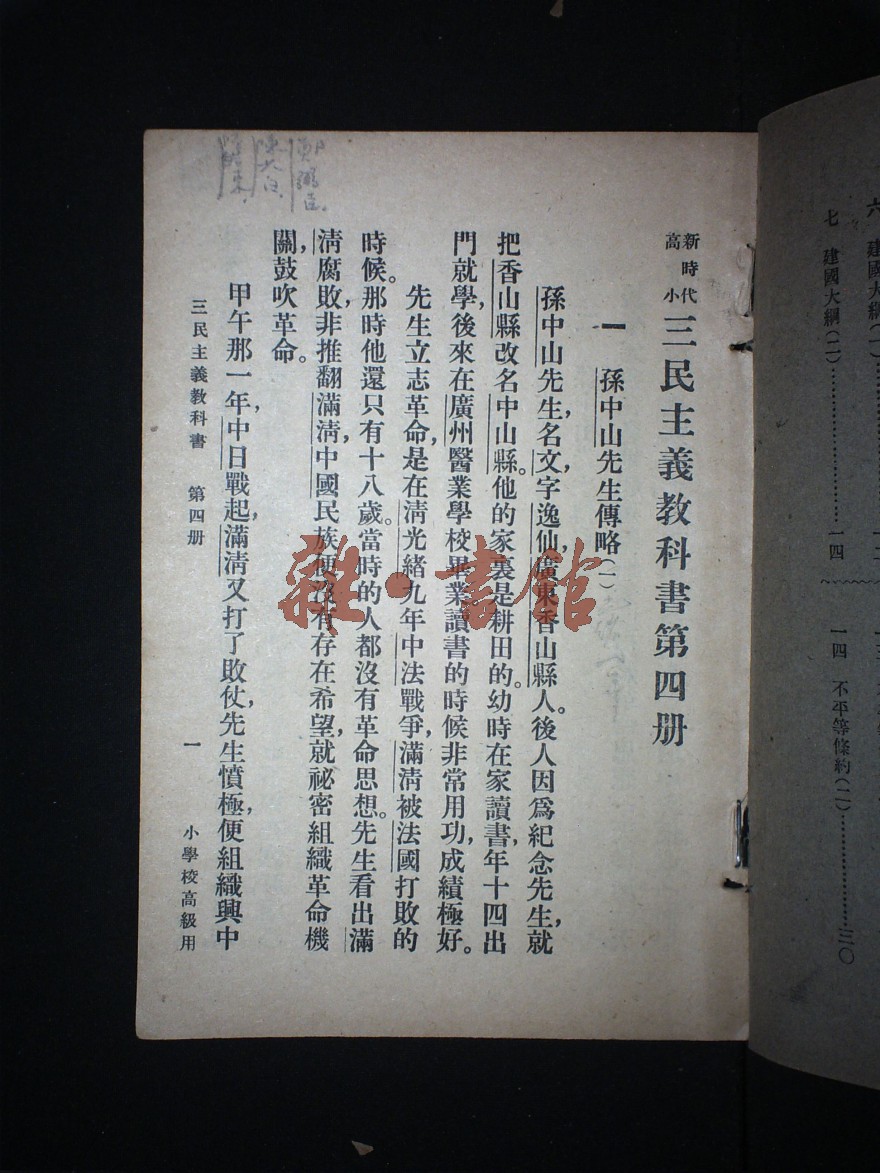 新時代
高小
三民主義教科書第四册
一 孫中山先生傳略(一)
孫中山先生,名文,字逸仙,廣東香山縣人。後人因爲紀念先生,就
把香山縣改名中山縣。他的家裏是耕田的。幼時在家讀書,年十四出
門就學,後來在廣州醫業學校畢業讀書的時候非常用功,成績極好。
先生立志革命,是在清光緒九年中法戰爭,滿清被法國打敗的
時候。那時他還只有十八歲。當時的人都沒有革命思想。先生看出滿
清腐敗,非推翻滿清,中國民族便沒有存在希望,就祕密組織革命機
關,鼓吹革命。
甲午那一年,中日戰起,滿清又打了敗仗,先生憤極,便組織興中
三民主義教科書 第四册 一 小學校高級用
建國大綱(一)
七 建國大綱(二)……一四
一四 不平等條約(二)……三〇
雜·書館